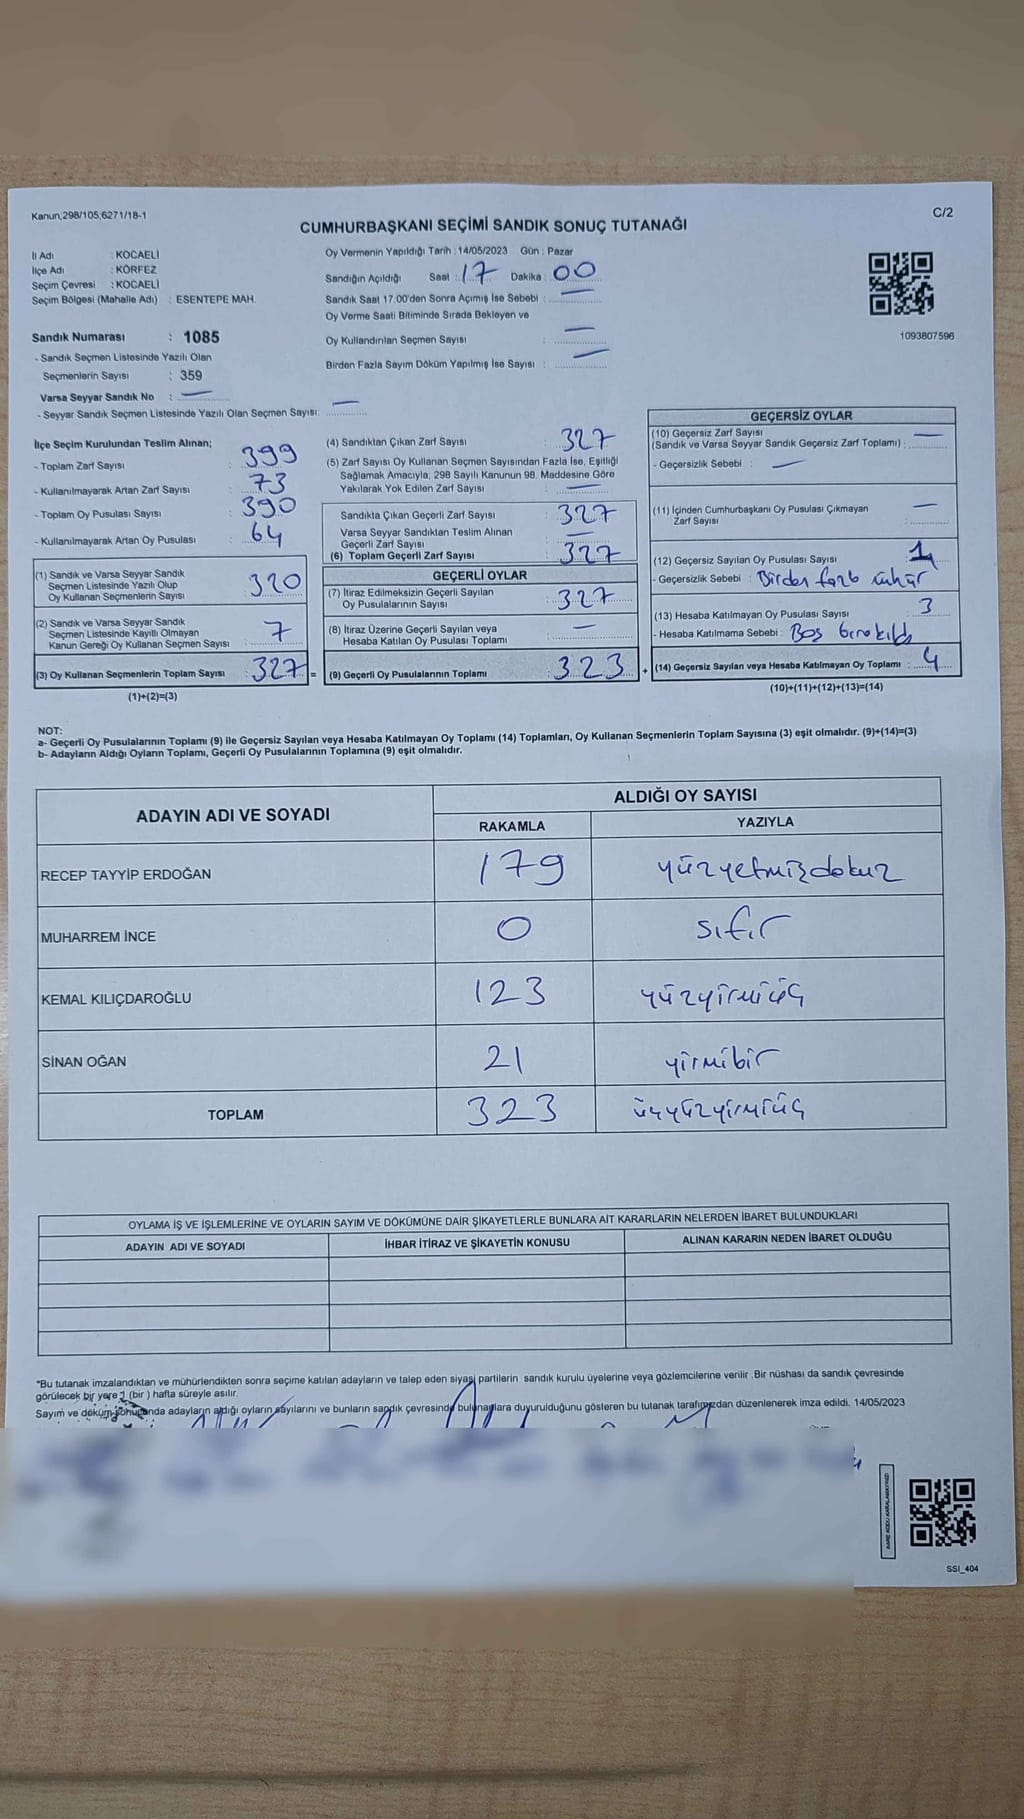 Kanun;298/105,6271/18-1
C/2
CUMHURBAŞKANI SEÇİMİ SANDIK SONUÇ TUTANAĞI
İl Adı : KOCAELİ
İlçe Adı : KÖRFEZ
Seçim Çevresi : KOCAELİ
Seçim Bölgesi (Mahalle Adı) : ESENTEPE MAH.
Oy Vermenin Yapıldığı Tarih : 14/05/2023 Gün : Pazar
Sandığın Açıldığı Saat : 17 Dakika : 00
Sandık Saat 17.00'den Sonra Açımış İse Sebebi : —
Oy Verme Saati Bitiminde Sırada Bekleyen ve
Oy Kullandırılan Seçmen Sayısı : —
Birden Fazla Sayım Döküm Yapılmış İse Sayısı : —
1093807596
Sandık Numarası : 1085
- Sandık Seçmen Listesinde Yazılı Olan
Seçmenlerin Sayısı : 359
Varsa Seyyar Sandık No : —
- Seyyar Sandık Seçmen Listesinde Yazılı Olan Seçmen Sayısı: —
İlçe Seçim Kurulundan Teslim Alınan;
- Toplam Zarf Sayısı : 399
- Kullanılmayarak Artan Zarf Sayısı : 73
- Toplam Oy Pusulası Sayısı : 390
- Kullanılmayarak Artan Oy Pusulası : 64
(1) Sandık ve Varsa Seyyar Sandık
Seçmen Listesinde Yazılı Olup
Oy Kullanan Seçmenlerin Sayısı : 320
(2) Sandık ve Varsa Seyyar Sandık
Seçmen Listesinde Kayıtlı Olmayan
Kanun Gereği Oy Kullanan Seçmen Sayısı : 7
(3) Oy Kullanan Seçmenlerin Toplam Sayısı : 327 =
(1)+(2)=(3)
(4) Sandıktan Çıkan Zarf Sayısı : 327
(5) Zarf Sayısı Oy Kullanan Seçmen Sayısından Fazla İse, Eşitliği
Sağlamak Amacıyla; 298 Sayılı Kanunun 98. Maddesine Göre
Yakılarak Yok Edilen Zarf Sayısı : —
Sandıkta Çıkan Geçerli Zarf Sayısı : 327
Varsa Seyyar Sandıktan Teslim Alınan
Geçerli Zarf Sayısı : —
(6) Toplam Geçerli Zarf Sayısı : 327
GEÇERLİ OYLAR
(7) İtiraz Edilmeksizin Geçerli Sayılan
Oy Pusulalarının Sayısı : 327
(8) İtiraz Üzerine Geçerli Sayılan veya
Hesaba Katılan Oy Pusulası Toplamı : —
(9) Geçerli Oy Pusulalarının Toplamı : 323 +
GEÇERSİZ OYLAR
(10) Geçersiz Zarf Sayısı
(Sandık ve Varsa Seyyar Sandık Geçersiz Zarf Toplamı) : —
- Geçersizlik Sebebi : —
(11) İçinden Cumhurbaşkanı Oy Pusulası Çıkmayan
Zarf Sayısı : —
(12) Geçersiz Sayılan Oy Pusulası Sayısı : 1
- Geçersizlik Sebebi : Birden fazla mühür
(13) Hesaba Katılmayan Oy Pusulası Sayısı : 3
- Hesaba Katılmama Sebebi : Boş bırakıldı
(14) Geçersiz Sayılan veya Hesaba Katılmayan Oy Toplamı : 4
(10)+(11)+(12)+(13)=(14)
NOT:
a- Geçerli Oy Pusulalarının Toplamı (9) ile Geçersiz Sayılan veya Hesaba Katılmayan Oy Toplamı (14) Toplamları, Oy Kullanan Seçmenlerin Toplam Sayısına (3) eşit olmalıdır. (9)+(14)=(3)
b- Adayların Aldığı Oyların Toplamı, Geçerli Oy Pusulalarının Toplamına (9) eşit olmalıdır.
ADAYIN ADI VE SOYADI
ALDIĞI OY SAYISI
RAKAMLA YAZIYLA
RECEP TAYYİP ERDOĞAN 179 yüzyetmişdokuz
MUHARREM İNCE 0 sıfır
KEMAL KILIÇDAROĞLU 123 yüzyirmiüç
SİNAN OĞAN 21 yirmibir
TOPLAM 323 üçyüzyirmiüç
OYLAMA İŞ VE İŞLEMLERİNE VE OYLARIN SAYIM VE DÖKÜMÜNE DAİR ŞİKAYETLERLE BUNLARA AİT KARARLARIN NELERDEN İBARET BULUNDUKLARI
ADAYIN ADI VE SOYADI İHBAR İTİRAZ VE ŞİKAYETİN KONUSU ALINAN KARARIN NEDEN İBARET OLDUĞU
"Bu tutanak imzalandıktan ve mühürlendikten sonra seçime katılan adayların ve talep eden siyasi partilerin sandık kurulu üyelerine veya gözlemcilerine verilir. Bir nüshası da sandık çevresinde
görülecek bir yere 1 (bir ) hafta süreyle asılır.
Sayım ve döküm sonucunda adayların aldığı oyların sayılarını ve bunların sandık çevresinde bulunanlara duyurulduğunu gösteren bu tutanak tarafımızdan düzenlenerek imza edildi. 14/05/2023
KARE KODU KARALAMAYINIZ!
SSI_404